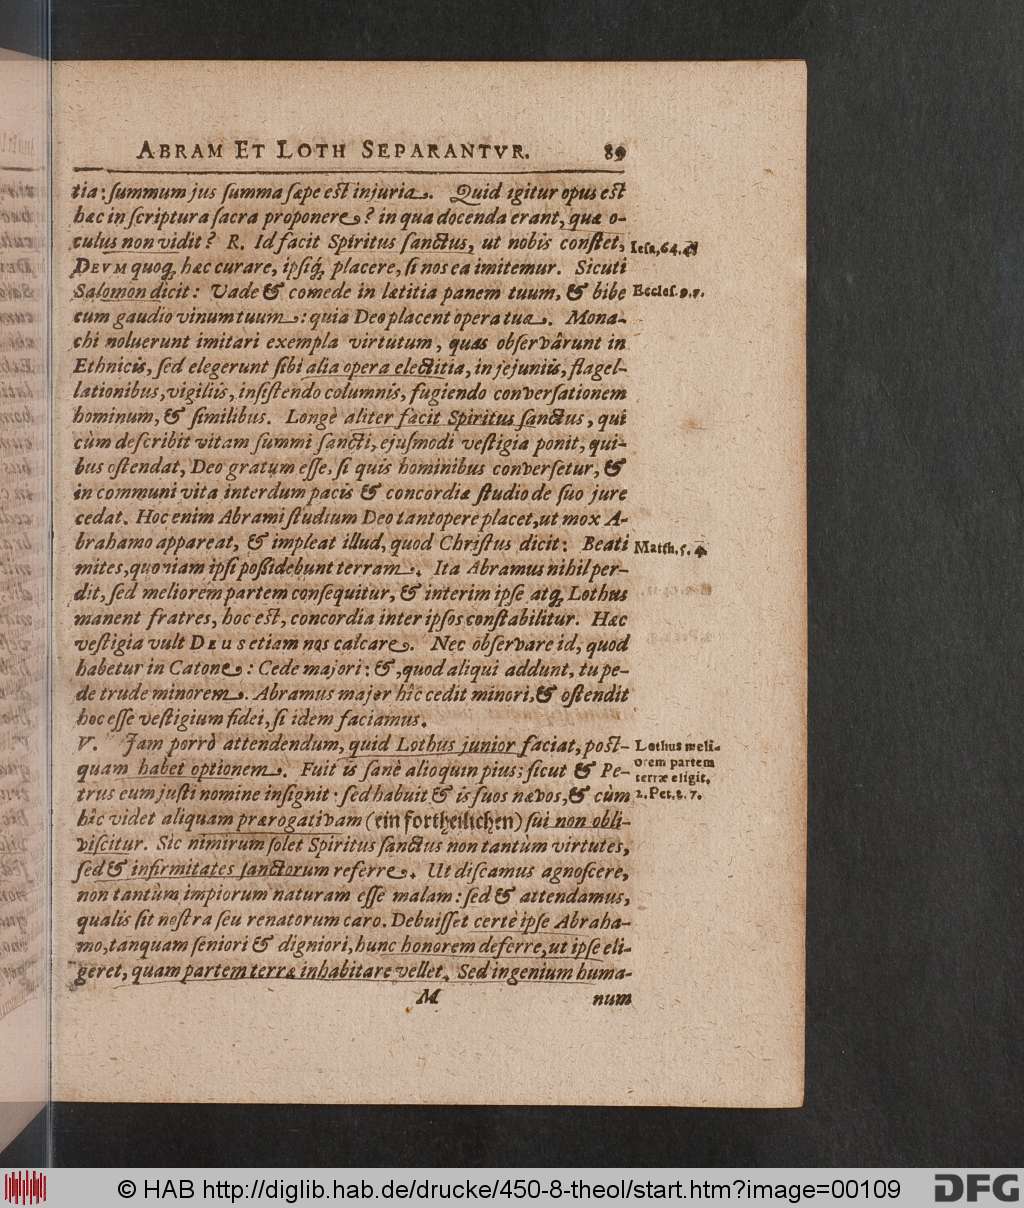 ABRAM ET LOTH SEPARANTVR. 89
tia: summum jus summa sæpe est injuria. Quid igitur opus est
hæc in scriptura sacra proponere? in qua docenda erant, quæ o-
culus non vidit? R. Id facit Spiritus sanctus, ut nobis constet,
Iesa, 64. 4
DEVM quoq; hæc curare, ipsiq; placere, si nos ea imitemur. Sicuti
Salomon dicit: Vade & comede in lætitia panem tuum, & bibe
Eccles. 9. 7.
cum gaudio vinum tuum: quia Deo placent opera tua. Mona-
chi noluerunt imitari exempla virtutum, quas observârunt in
Ethnicis, sed elegerunt sibi alia opera electitia, in jejuniis, flagel-
lationibus, vigiliis, insistendo columnis, fugiendo conversationem
hominum, & similibus. Longè aliter facit Spiritus sanctus, qui
cùm describit vitam summi sancti, ejusmodi vestigia ponit, qui-
bus ostendat, Deo gratum esse, si quis hominibus conversetur, &
in communi vita interdum pacis & concordiæ studio de suo jure
cedat. Hoc enim Abrami studium Deo tantopere placet, ut mox A-
brahamo appareat, & impleat illud, quod Christus dicit: Beati
Matth. 5. 4
mites, quoniam ipsi possidebunt terram. Ita Abramus nihil per-
dit, sed meliorem partem consequitur, & interim ipse atq; Lothus
manent fratres, hoc est, concordia inter ipsos constabilitur. Hæc
vestigia vult DEUS etiam nos calcare. Nec observare id, quod
habetur in Catone: Cede majori: &, quod aliqui addunt, tu pe-
de trude minorem. Abramus major hîc cedit minori, & ostendit
hoc esse vestigium fidei, si idem faciamus.
V. Jam porrò attendendum, quid Lothus junior faciat, post-
quam habet optionem. Fuit is sanè alioquin pius; sicut & Pe-
trus eum justi nomine insignit: sed habuit & is suos nævos, & cùm
Lothus meli-
orem partem
terræ eligit.
2. Pet. 2. 7.
hîc videt aliquam prærogativam (ein fortheilichen) sui non obli-
viscitur. Sic nimirum solet Spiritus sanctus non tantùm virtutes,
sed & infirmitates sanctorum referre. Ut discamus agnoscere,
non tantùm impiorum naturam esse malam: sed & attendamus,
qualis sit nostra seu renatorum caro. Debuisset certè ipse Abraha-
mo, tanquam seniori & digniori, hunc honorem deferre, ut ipse eli-
geret, quam partem terræ inhabitare vellet. Sed ingenium huma-
M num
© HAB http://diglib.hab.de/drucke/450-8-theol/start.htm?image=00109
DFG